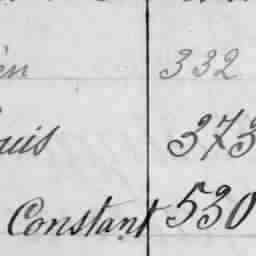 en 332
uis 373
Constant 530